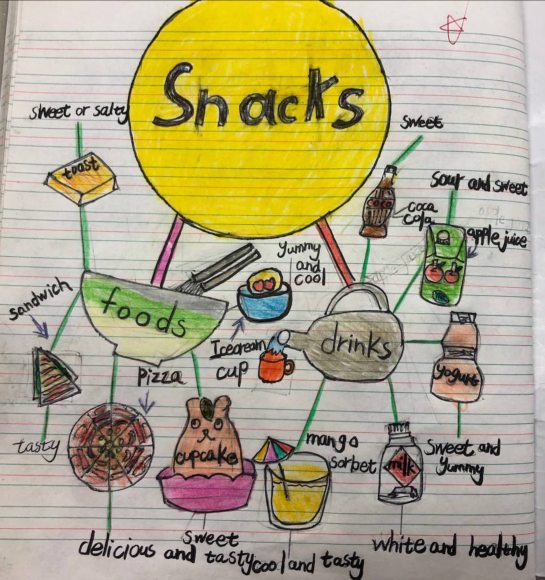 Snacks
sweet or salty
toast
sweet
coca
coca
cola
sour and sweet
apple juice
foods
yummy
and
cool
Icecream
cup
sandwich
tasty
Pizza
delicious and tasty
cupcake
sweet
drinks
mango
sorbet
cool and tasty
milk
white and healthy
yogurt
Sweet and
yummy